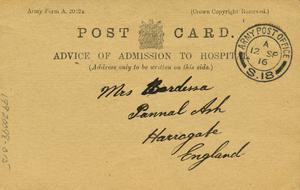 Army Form A. 2042a.
(Crown Copyright Reserved.)
POST CARD.
ADVICE OF ADMISSION TO HOSPIT
(Address only to be written on this side.)
ARMY POST OFFICE
A
12 SP
16
S.18
Mrs
Pannal Ash
Harrogate
England